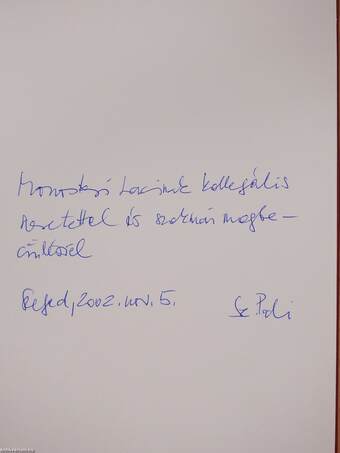 Monostori Lacinak kollegiális
szeretettel és szakmai megbe-
csüléssel
Szeged, 2002. nov. 5.